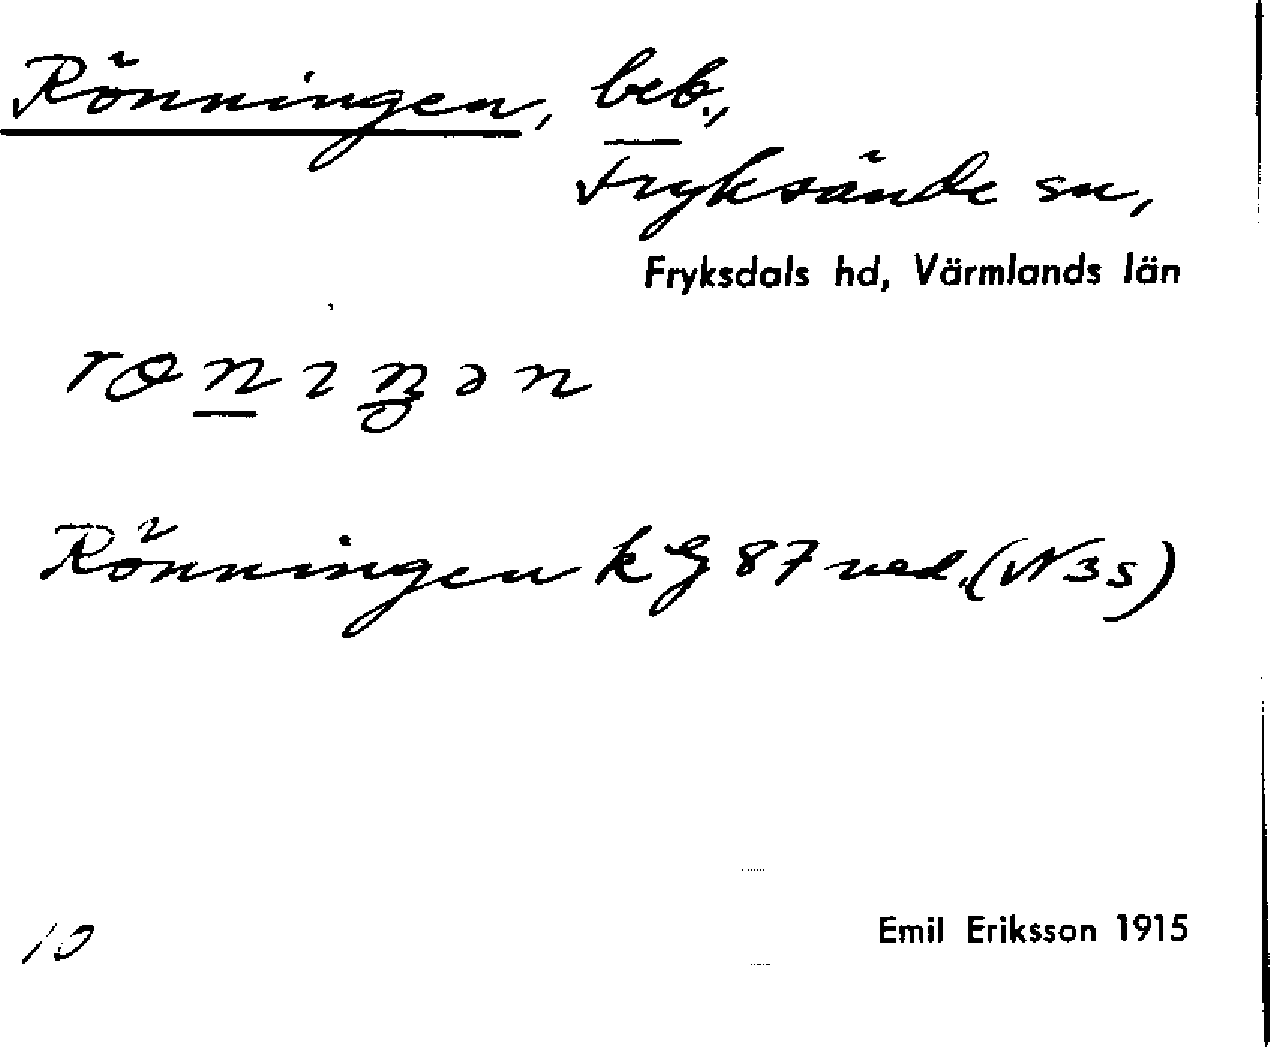 Rönningen, beb.,
Fryksände sn,
Fryksdals hd, Värmlands län
Rönningen k G 87 ned. (N3s)
10
Emil Eriksson 1915